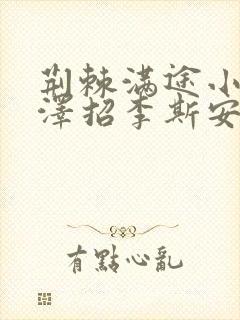 荆棘满途小
澤招李斯安
有點心亂